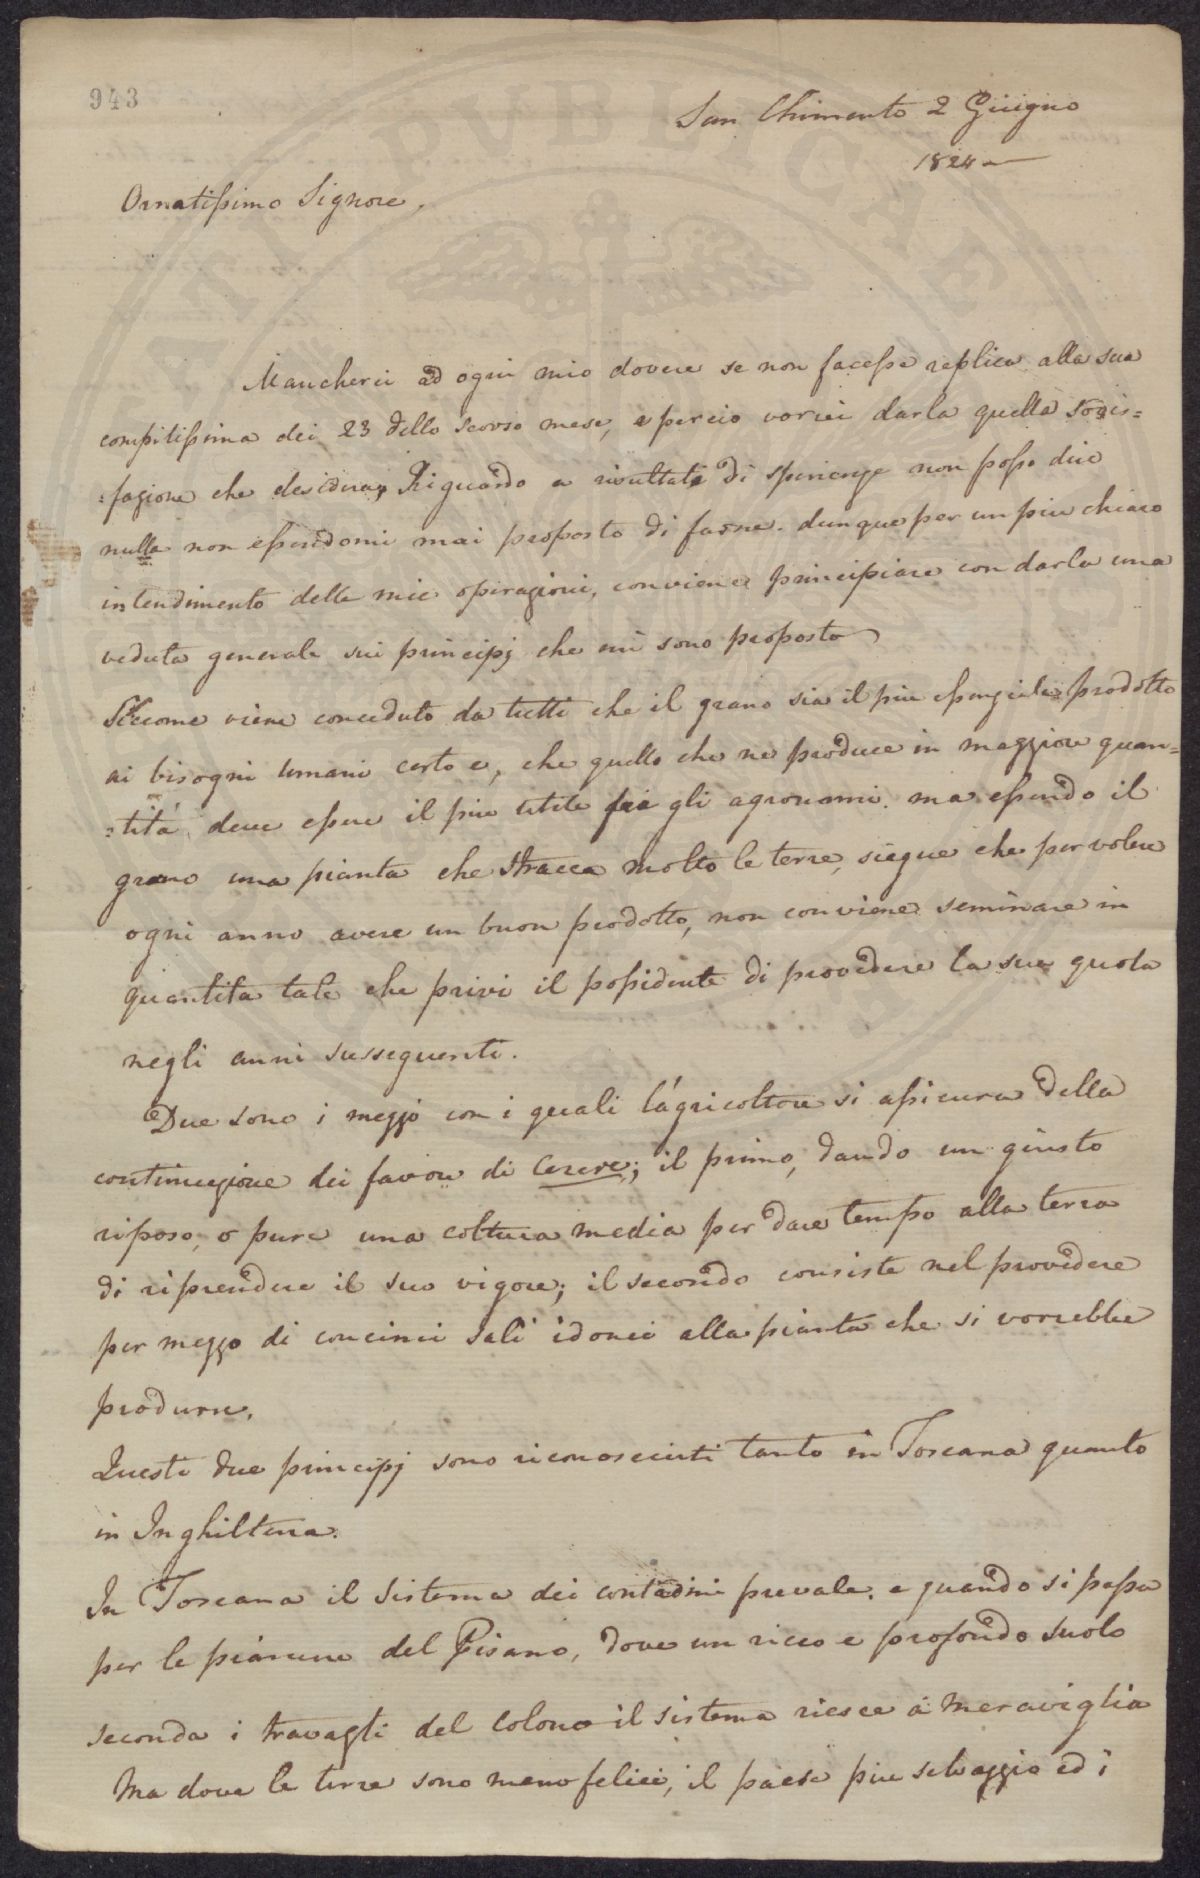 943
San Chimento 2 Giugno
1824
Ornatissimo Signore,
Mancherei ad ogni mio dovere se non facesse replica alla sua
compitissima dei 23 dello scorso mese, e percio vorrei darla quella sodis=
=fazione che desidera, Riguardo a risultati di sperienze non posso dire
nulla non essendomi mai proposto di farne. dunque per un piu chiaro
intendimento delle mie operazioni, conviene principiare con darla una
veduta generale sui principj che mi sono proposto
Siccome viene conceduto da tutti che il grano sia il piu essenziale prodotto
ai bisogni umani certo e, che quello che ne produce in maggiore quan=
=tità deve essere il piu utile fra gli agronomi. ma essendo il
grano una pianta che stracca molto le terre, siegue che per volere
ogni anno avere un buon prodotto, non conviene seminare in
quantita tale che privi il possidente di provedere la sua quota
negli anni susseguenti.
Due sono i mezzi con i quali l'agricoltore si assicura della
continuazione dei favori di Cerere; il primo, dando un giusto
riposo, o pure una coltura media per dare tempo alla terra
di riprendere il suo vigore; il secondo consiste nel provedere
per mezzo di concimi sali idonei alla pianta che si vorrebbe
produrre.
Questi due principj sono riconosciuti tanto in Toscana quanto
in Inghilterra.
In Toscana il sistema dei contadini prevale. e quando si passa
per le pianure del Pisano, dove un ricco e profondo suolo
seconda i travagli del Colono il sistema riesce a meraviglia
Ma dove le terre sono meno felici, il paese piu selvaggio ed i